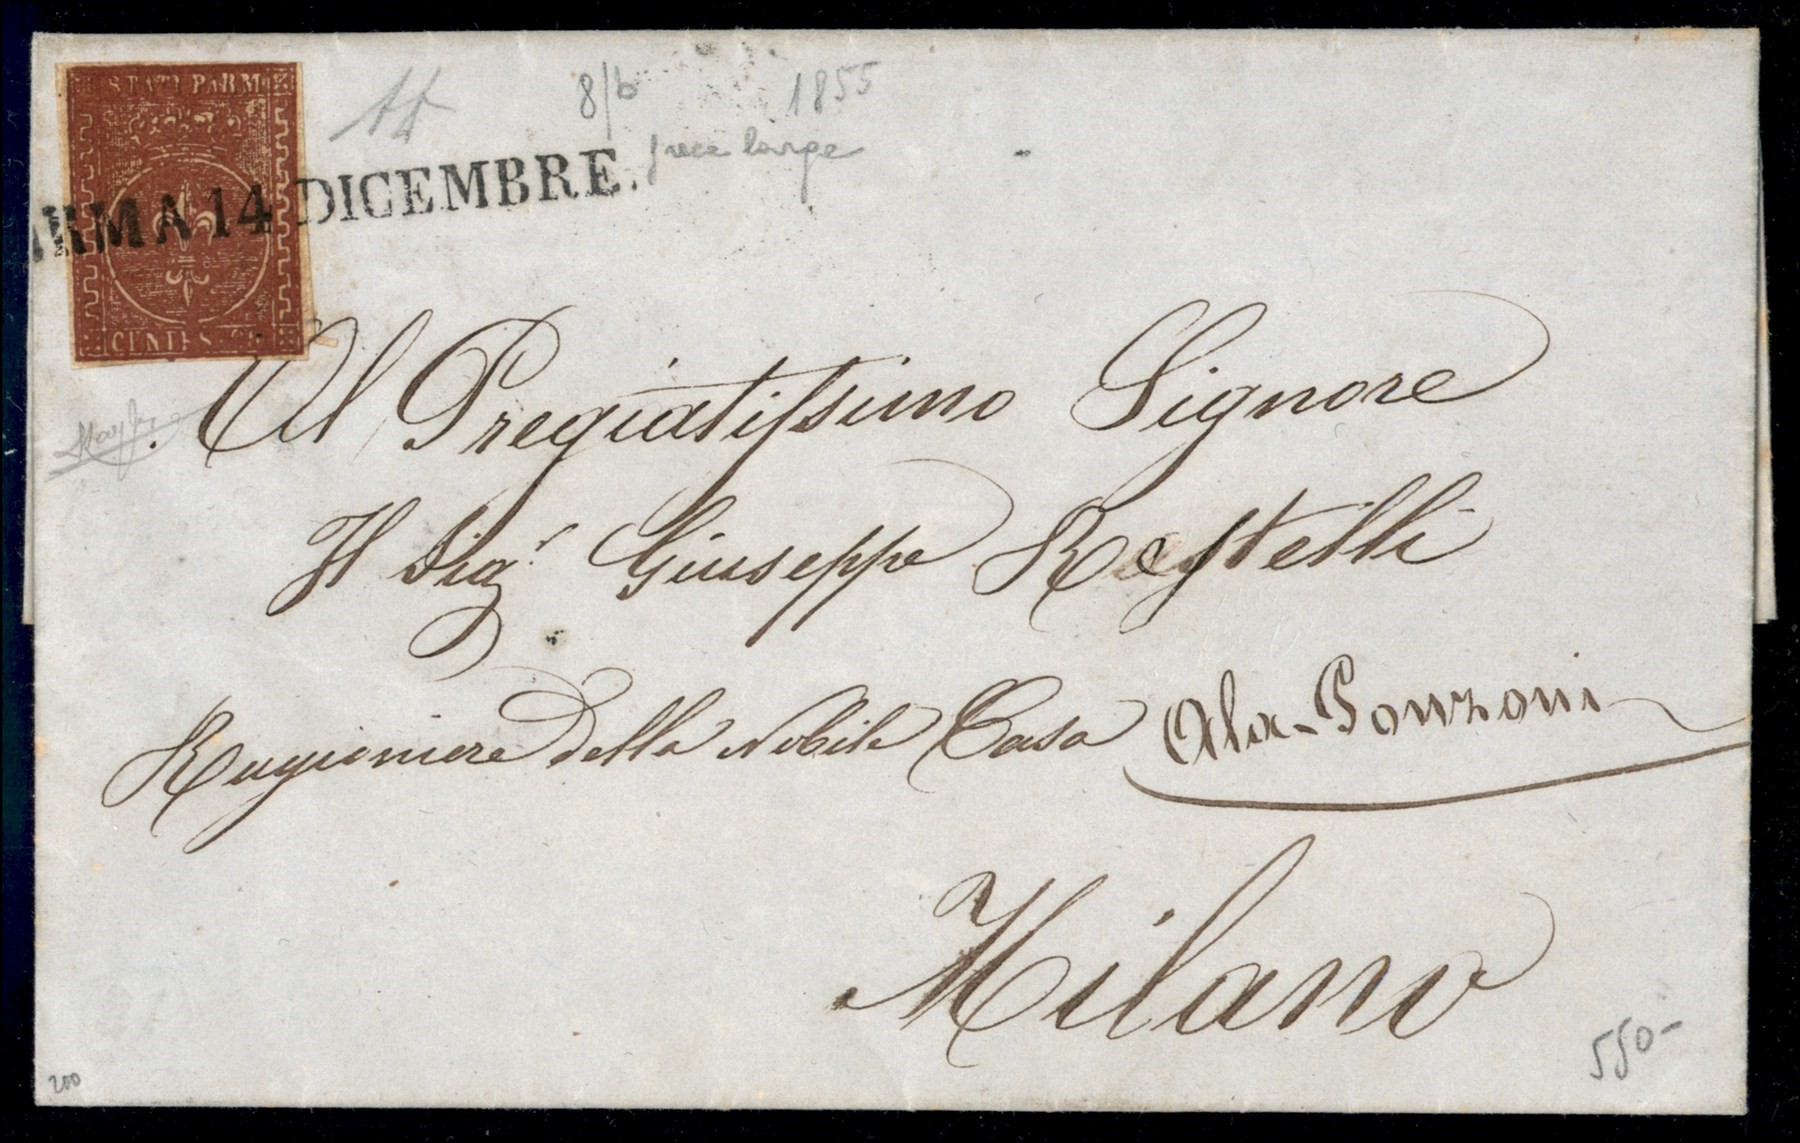 STATI PARM
CENTES. 25
ARMA 14 DICEMBRE.
8/b
1855
grece large
Al Pregiatissimo Signore
Il Sigr Giuseppe Restelli
Ragioniere della Nobile Casa Ala-Ponzoni
Milano
200
550-